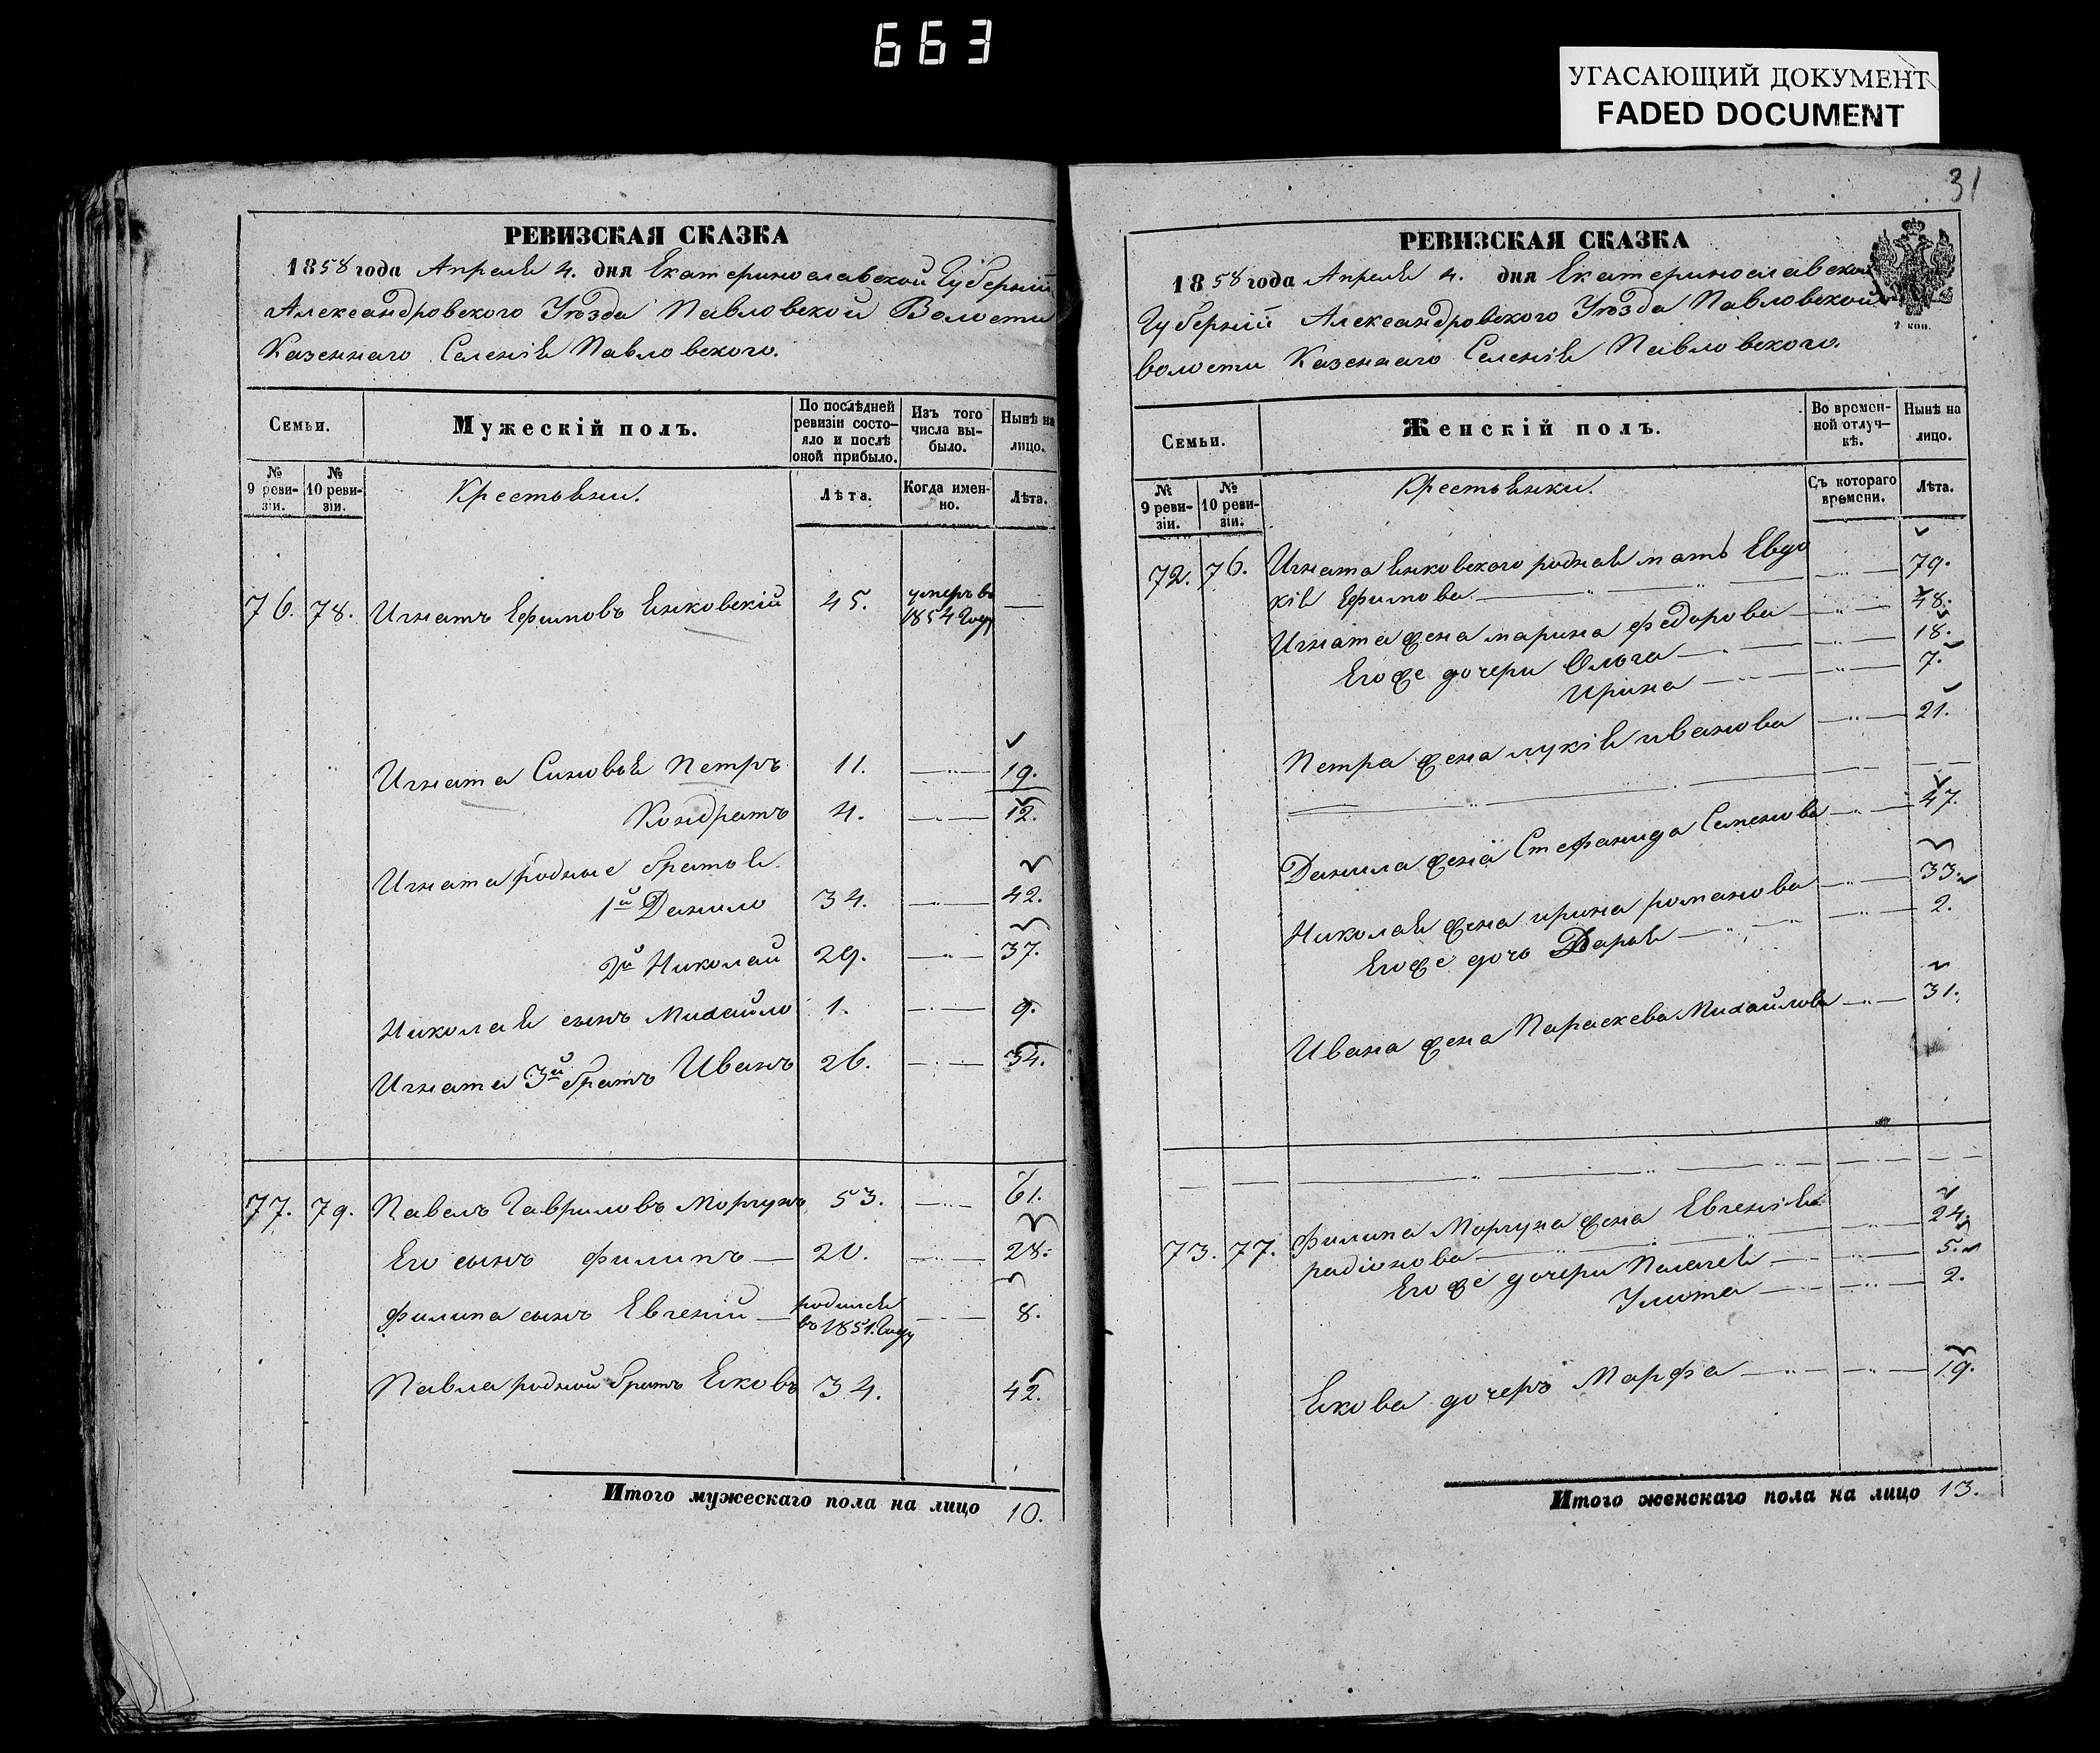 663
УГАСАЮЩИЙ ДОКУМЕНТ
FADED DOCUMENT
РЕВИЗСКАЯ СКАЗКА
1858 года Апреля 4. дня Екатеринославской Губерніи
Александровского Уѣзда Павловской Волости
Казеннаго Селенія Павловского.
Семьи.
Мужескій полъ.
По послѣдней ревизіи состояло и послѣ оной прибыло.
Изъ того числа выбыло.
Нынѣ на лицо.
№ 9 ревизіи.
№ 10 ревизіи.
Крестьяни.
Лѣта.
Когда именно.
Лѣта.
76. 78. Игнатъ Ефимовъ Янковскій 45. умеръ въ 1854 Году —
Игната Синовья Петръ 11. — 19.
Кондратъ 4. — 12.
Игната родные братья.
1й Данило 34. — 42.
2й Николай 29. — 37.
Николая сынъ Михайло 1. — 9.
Игната 3й братъ Иванъ 26. — 34.
77. 79. Павелъ Гавриловъ Моргунъ 53. — 61.
Его сынъ Филипъ — 20. — 28.
Филипа сынъ Евгений — родился въ 1851. Году — 8.
Павла родной братъ Яковъ 34. 42.
Итого мужескаго пола на лицо 10.
31
РЕВИЗСКАЯ СКАЗКА
1858 года Апреля 4. дня Екатеринославской
Губерніи Александровского Уѣзда Павловской
волости Казеннаго Селенія Павловского.
2 коп.
Семьи.
Женскій полъ.
Во временной отлучкѣ.
Нынѣ на лицо.
№ 9 ревизіи.
№ 10 ревизіи.
Крестьянки.
Съ котораго времени.
Лѣта.
72. 76. Игната Янковского родная мать Евдо
кія Ефимова — 79.
Игната жена марина федорова — 48.
Егоже дочери Ольга — 18.
Ирина — 7.
Петра жена лукія иванова — 21.
Данила жена Стефанида Семенова — 47.
Николая жена ирина романова — 33.
Егоже дочь Дарья — 2.
Ивана жена Параскева Михайлова — 31.
73. 77. Филипа Моргуна жена Евгенія
радіонова — 24.
Егоже дочери Пелагея — 5.
Улита — 2.
Якова дочерь Марфа — 19.
Итого женскаго пола на лицо 13.